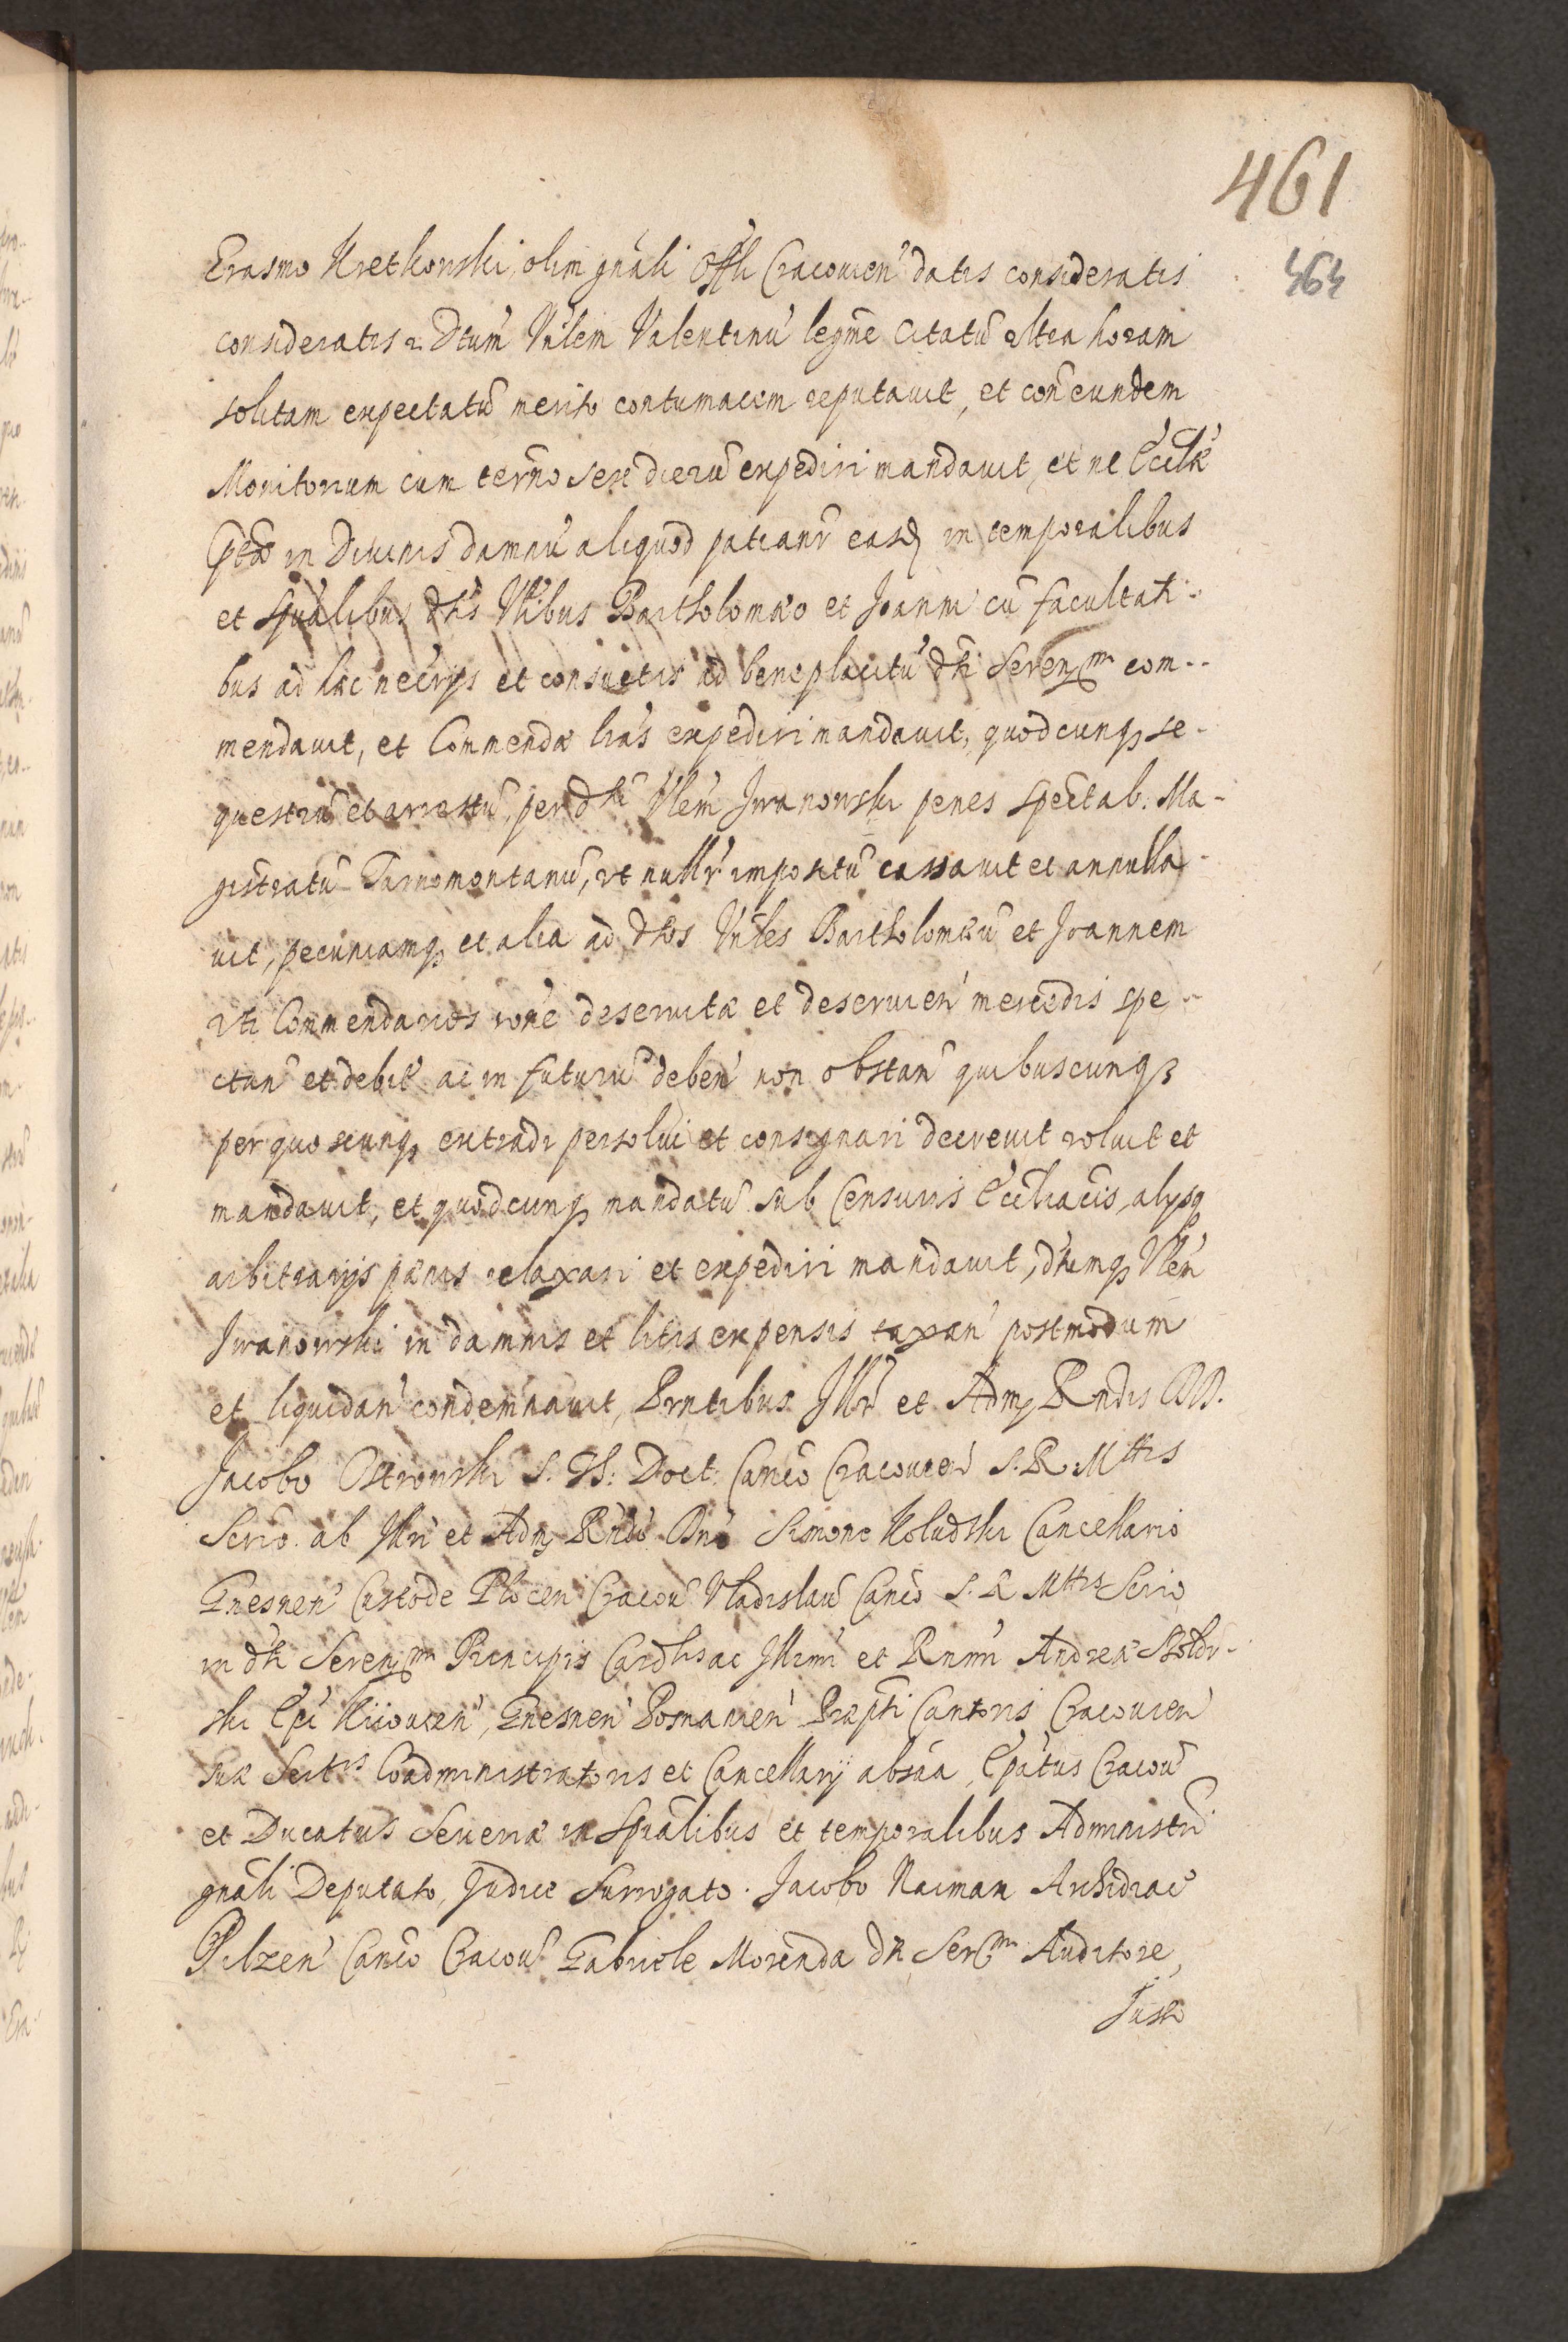 461
464
Erasmo Kretkowski, olim gnãli Offli Cracouien̄ datis consideratis
consideratis Dtum̃ Vñlem Valentinũ legmẽ Citatũ vltra horam
solitam expectatũ merito contumacem reputauit, et coñ eundem
Monitorium cum termo sex dierũ expediri mandauit, et ne Ecclæ
in Diuinis damnũ aliquod patianr̃ easd in temporalibus
et spũalibus dtis Vlibus Bartholomæo et Joanni cũ facultati-
bus ad hæc necrijs et consuetis ad beneplacitũ dti Serenmi com-
mendauit, et Commendæ lrãs expediri mandauit, quodcunq se-
questrũ et arrestũ, per dtũ Vlem̃ Jwanowski penes spectab. Ma-
gistratũ Tarnomontanũ, vt nullr̃ impositũ cassauit et annulla-
uit, pecuniamq et alia ad dtos Vnles Bartholomæũ et Joannem
vti Commendarios rõne deseruitæ et deseruien̄ mercedis spe-
ctan̄ et debit̃ ac in futurũ deben̄ non obstan̄ quibuscunq
per quoscunq extradi persolui et consignari decreuit voluit et
mandauit, et quodcunq mandatũ sub Censuris Ecclicis, alijsq
arbitrarijs pænis relaxari et expediri mandauit, dtumq Vlem̃
Jwanowski in damnis et litis expensis taxan̄ postmodum
et liquidan̄ condemnauit, Prntibus Illr̃ et Adm Rndis DD.
Jacobo Ostrowski S. Th: Doct: Canco Cracouien̄ S. R. Mttis
Scrio. ab Illri et Adm Rndo Dno Simone Koludzki Cancellario
Gnesnen̄ Custode Plocen̄ Cracou̅ Vladislau̅ Canco S. R. Mttis Scrio
in dti Serenmi Principis Cardlis ac Illrmi et Rnmi Andreæ Szoldr-
ski Epi Kiiouien̄, Gnesnen̄ Posnanien̄ Præpti Cantoris Cracouien̄
suæ Sertis Coadministratoris et Cancellarij absa̅a, Epatus Cracou̅
et Ducatus Seueriæ in spũalibus et temporalibus Administri
gnãli Deputato, Judice Surrogato. Jacobo Naiman Archidiac̃
Pilzen̄ Canco Cracou̅ Gabriele Morenda dti Sermi Auditore,
Justo